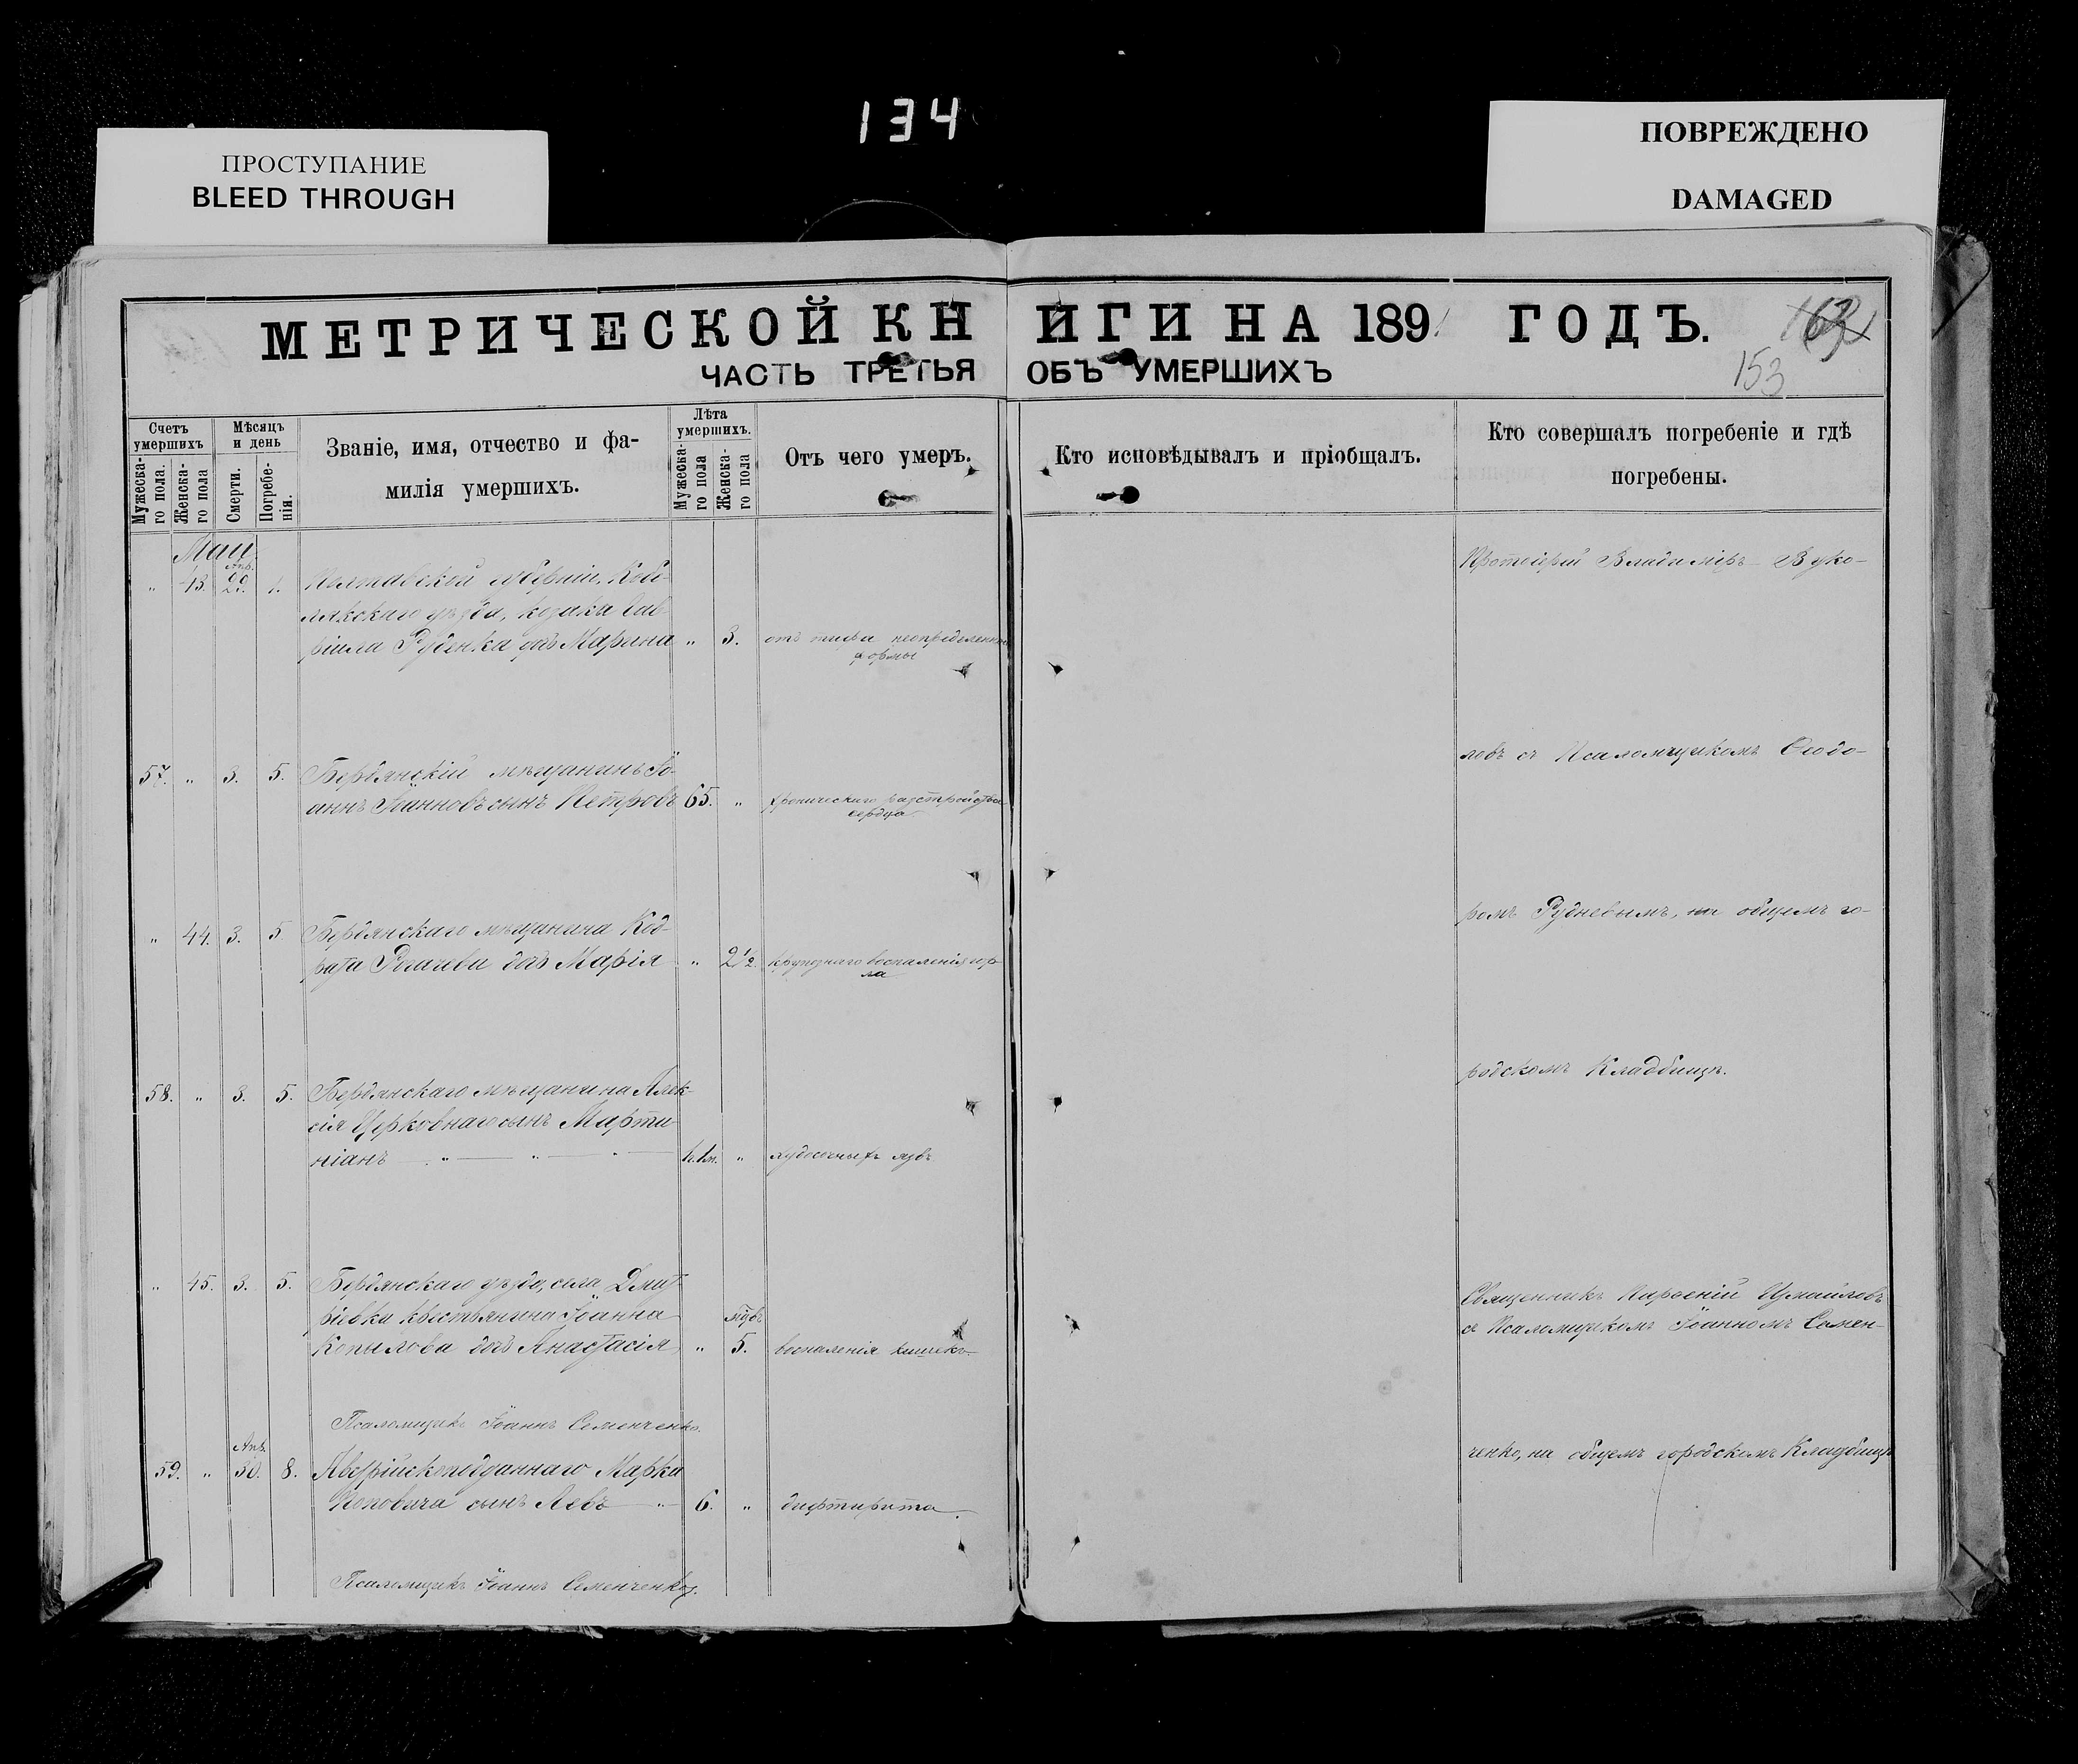 134
ПРОСТУПАНИЕ
BLEED THROUGH
ПОВРЕЖДЕНО
DAMAGED
МЕТРИЧЕСКОЙ КНИГИ НА 1891 ГОДЪ.
153
ЧАСТЬ ТРЕТЬЯ ОБЪ УМЕРШИХЪ
Счетъ умершихъ
Мужеска-
го пола.
Женска-
го пола
Мѣсяцъ и день
Смерти.
Погребе-
нія.
Званіе, имя, отчество и фа-
милія умершихъ.
Лѣта умершихъ.
Мужеска-
го пола
Женска-
го пола
Отъ чего умеръ.
Кто исповѣдывалъ и пріобщалъ.
Кто совершалъ погребеніе и гдѣ
погребены.
Маій
Апр.
" 43. 29. 1. Полтавской губерніи, Кобе-
лякскаго уѣзда, козака Гав-
ріила Руденка дчь Марина " 3. отъ тифа неопредѣленной
формы
Протоіерей Владиміръ Вуко-
57. " 3. 5. Бердянскій мѣщанинъ Іо-
аннъ Іоанновъ сынъ Петровъ 65. " хроническаго разстройства
сердца
ловъ съ Псаломщикомъ Ѳеодо-
" 44. 3. 5. Бердянскаго мѣщанина Код-
рата Рогачева дчь Марія " 2 1/2. крупознаго воспаленія гор-
ла
ромъ Рудневымъ, на общемъ го-
58. " 3. 5. Бердянскаго мѣщанина Алек-
сія Церковнаго сынъ Марти-
ніанъ " худосочныхъ язвъ
родскомъ Кладбищѣ.
" 45. 3. 5. Бердянскаго уѣзда, села Дмит-
ріевки крестьянина Іоанна
Копылова дчь Анастасія " мѣс. 5. воспаленія кишекъ
Священникъ Парѳеній Измайловъ
съ Псаломщикомъ Іоанномъ Семен-
Псаломщикъ Іоаннъ Семенченко.
Апр.
59. " 30. 8. Австрійскоподданнаго Марка
Поповича сынъ Левъ " 6. " дифтирита.
ченко, на общемъ городскомъ Кладбищѣ
Псаломщикъ Іоаннъ Семенченко.